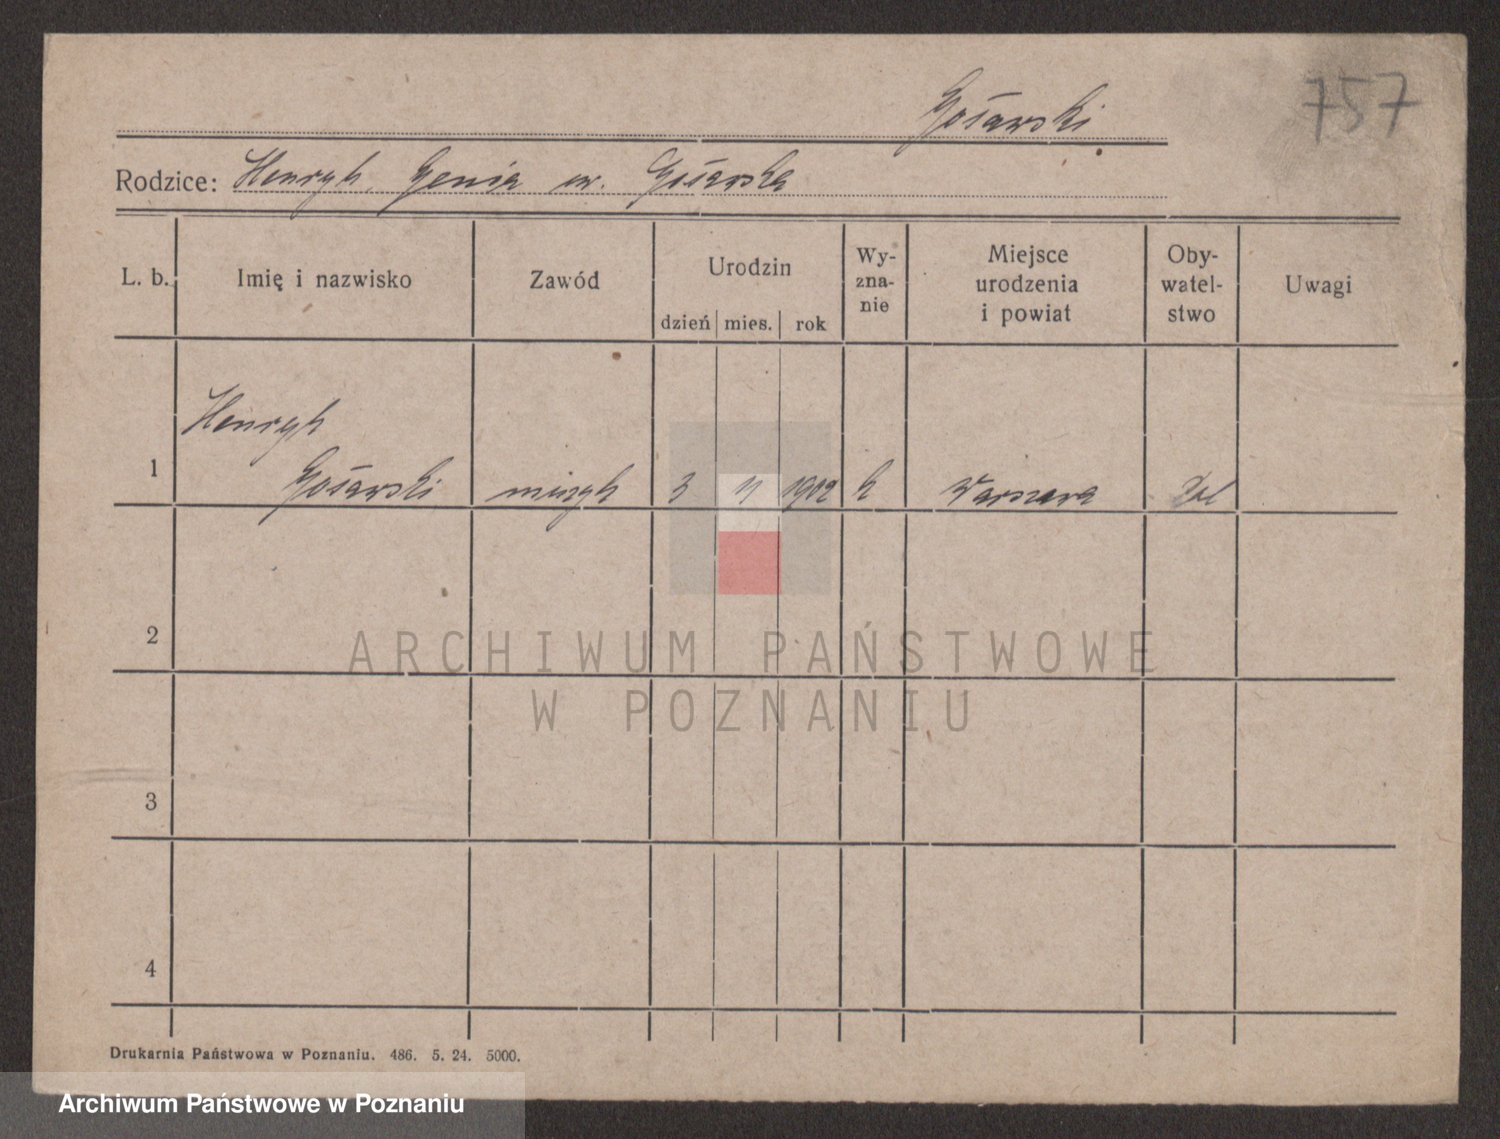 757
Gosławski
Rodzice: Henryk, Genia
L. b.
Imię i nazwisko
Zawód
Urodzin
dzień
mies.
rok
Wy-
zna-
nie
Miejsce
urodzenia
i powiat
Oby-
watel-
stwo
Uwagi
1
Henryk
muzyk
3
11
1902
k
Warszawa
Pol
2
3
4
ARCHIWUM PAŃSTWOWE
W POZNANIU
Drukarnia Państwowa w Poznaniu. 486. 5. 24. 5000.
Archiwum Państwowe w Poznaniu